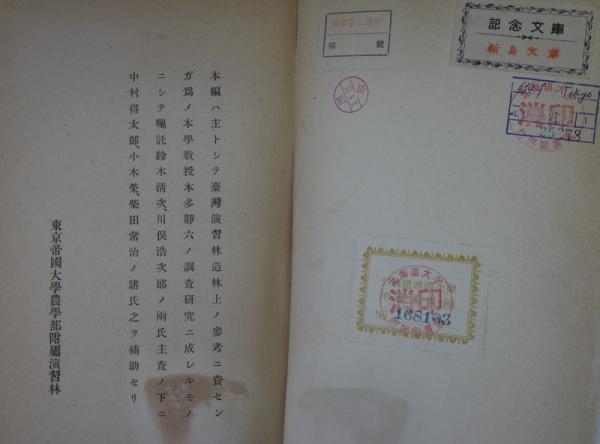 記念文庫
新島文庫
號
北海道大
消印
北海道大
消印
168163
本編ハ主トシテ臺灣演習林造林上ノ參考ニ資セン
ガ爲メ本學敎授本多靜六ノ調査硏究ニ成レルモノ
ニシテ囑託鈴木淸次、川俣浩次郎ノ兩氏主査ノ下ニ
中村得太郎、小木榮、柴田常治ノ諸氏之ヲ補助セリ
東京帝國大學農學部附屬演習林